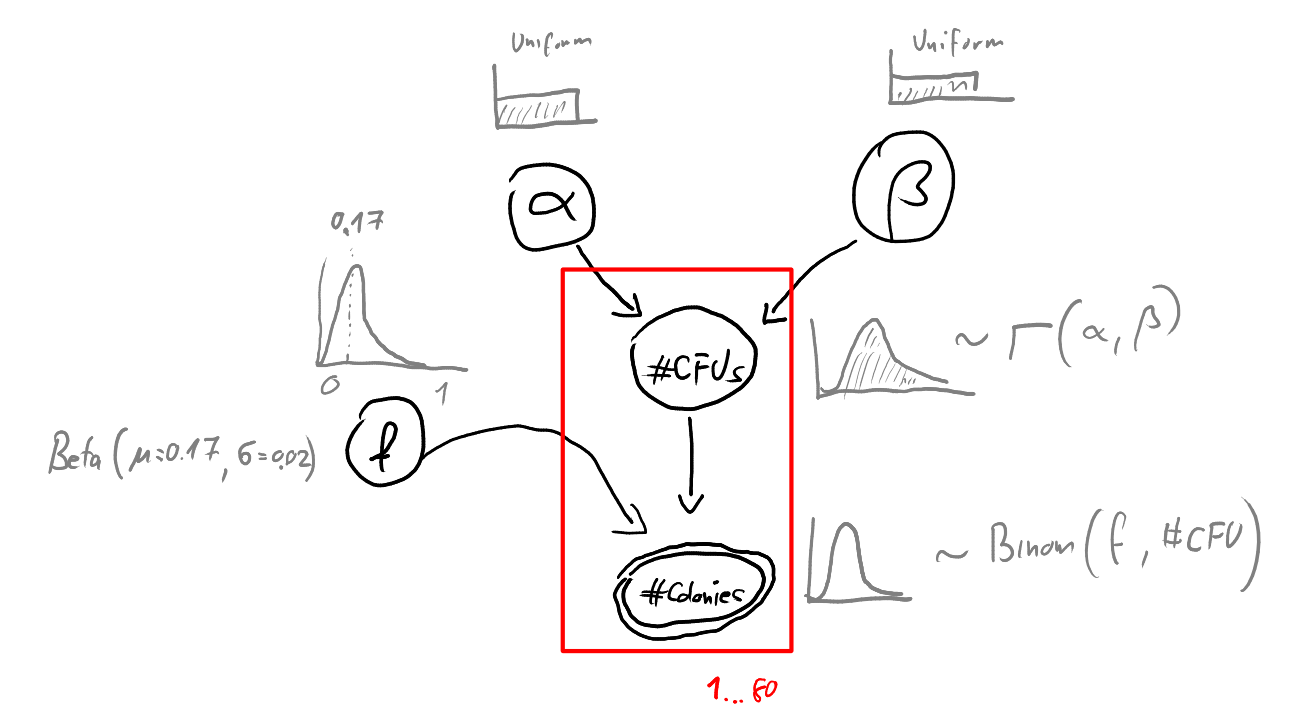 Uniform
Uniform
α
β
0.17
0 1
#CFUs
~ Γ(α, β)
f
Beta (μ=0.17, σ=0.02)
#Colonies
~ Binom(f, #CFU)